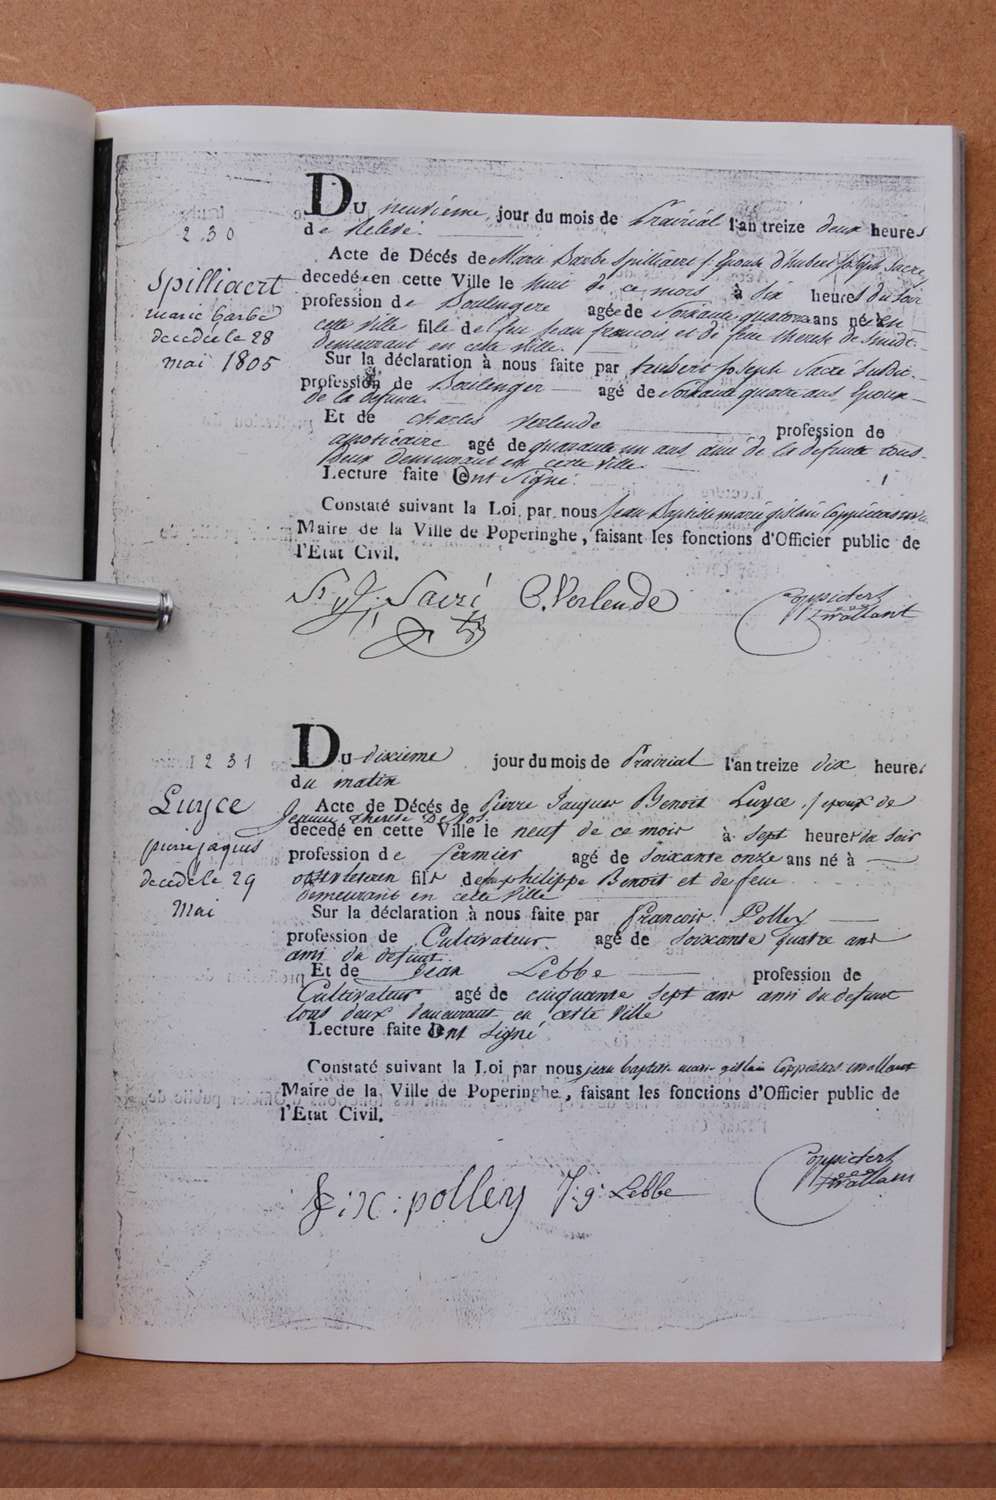 230
Spilliaert
marie barbe
decedée le 28
mai 1805
Du neuvième jour du mois de Prairial l'an treize deux heures
de Relevé.
Acte de Décés de Marie Barbe Spilliaert f. Epouse d'hubert Joseph Sacre
decedé en cette Ville le huit de ce mois à Six heures du Soir
profession de Boulengere agée de Soixante quatorze ans né en
cette Ville fille de feu Jean francois et de feue therese de Smidt
demeurant en cette Ville.
Sur la déclaration à nous faite par hubert Joseph Sacré Susdit
profession de Boulenger agé de Soixante quatre ans, Epoux
de la defunte.
Et de Charles Verlende profession de
apoticaire agé de quarante un ans ami de la defunte tous
Deux demeurant en cette ville.
Lecture faite Ont Signé.
Constaté suivant la Loi, par nous Jean Baptiste marie gislain
Maire de la Ville de Poperinghe, faisant les fonctions d'Officier public de
l'Etat Civil.
Sacré C. Verlende
231
Luyce
pierre jaques
decedé le 29
Mai
Du dixieme jour du mois de Prairial l'an treize dix heures
du matin
Acte de Décés de Pierre Jacques Benoit Luyce, epoux de
Jeanne Therese De Vos.
decedé en cette Ville le neuf de ce mois à sept heures du soir
profession de Fermier agé de soixante onze ans né à
fils de feu philippe Benoit et de feue
demeurant en cette Ville
Sur la déclaration à nous faite par Francois Polley
profession de Cultivateur agé de Soixante quatre ans
ami du defunt.
Et de Jean Lebbe profession de
Cultivateur agé de cinquante sept ans ami du defunt
tous deux demeurant en cette Ville
Lecture faite Ont Signé
Constaté suivant la Loi par nous jean baptiste marie gislain
Maire de la Ville de Poperinghe, faisant les fonctions d'Officier public de
l'Etat Civil.
polley Lebbe